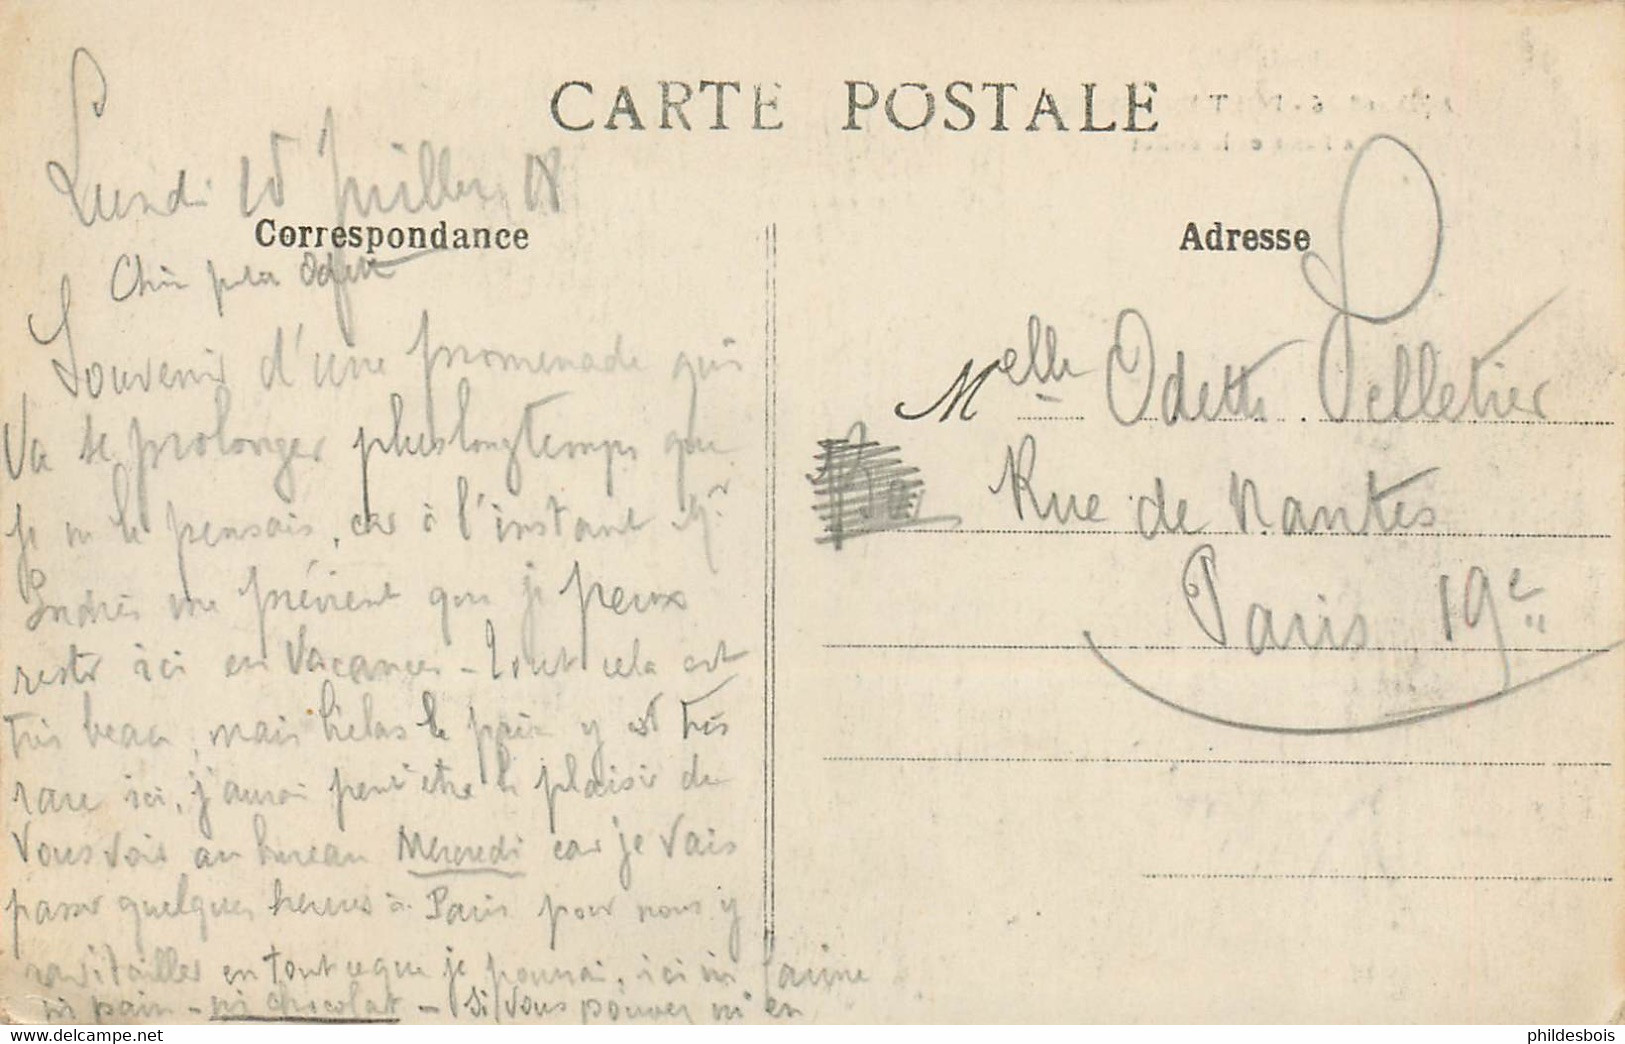 CARTE POSTALE
Lundi 15 Juillet 18
Correspondance
Chère petite Odette
Souvenir d'une promenade qui
va se prolonger plus longtemps que
je ne le pensais, car à l'instant Mr
me prévient que je peux
rester ici en vacances - Tout cela est
très beau, mais hélas le pain y est très
rare ici, j'aurai peut être le plaisir de
vous voir au bureau Mercredi car je vais
passer quelques heures à Paris pour nous y
ravitailler en tout ce que je pourrai, ici ni farine
ni pain - ni chocolat - Si vous pouvez m'en
Adresse
Melle Odette Pelletier
Rue de Nantes
Paris 19e
phildesbois
www.delcampe.net